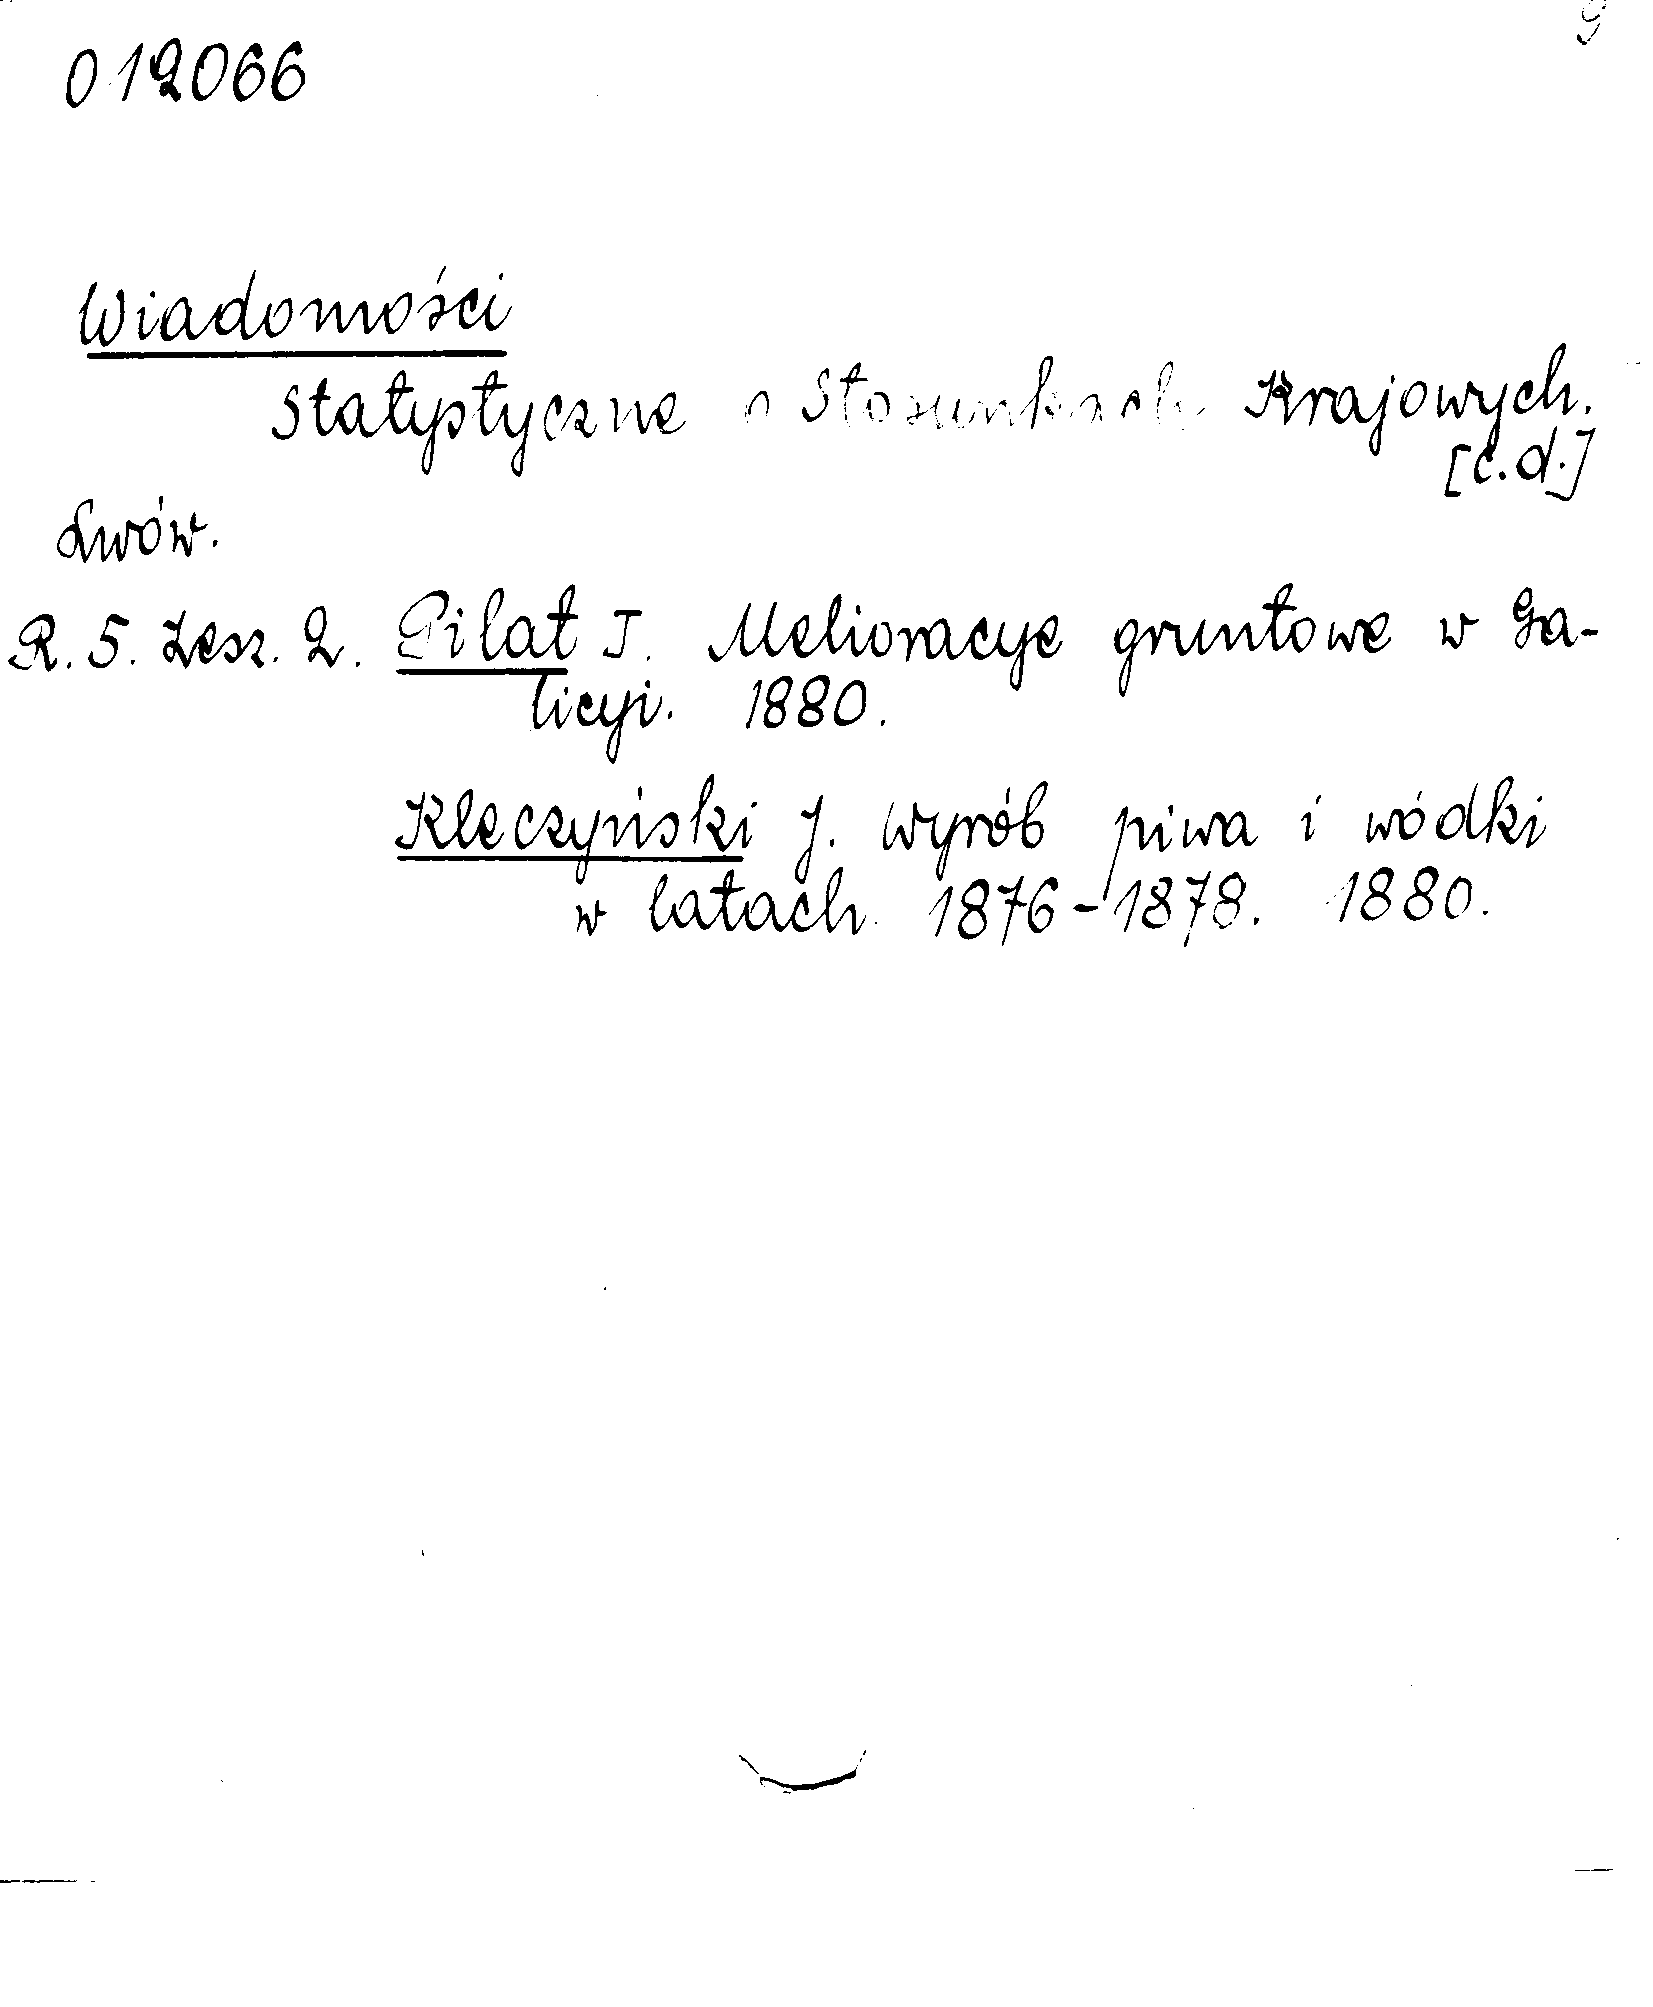 9
012066
Wiadomości
Statystyczne o Stosunkach Krajowych.
[c.d.]
Lwów.
R. 5. Zesz. 2. Pilat T. Melioracye gruntowe w Ga-
licyi. 1880.
Kleczyński J. Wyrób piwa i wódki
w latach 1876-1878. 1880.